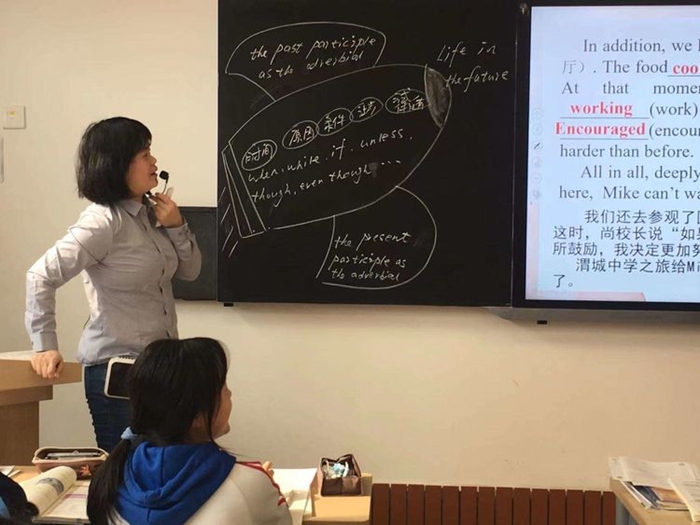 the past participle
as the adverbial
Life in
the future
时间 原因 条件 让步
when, while, if, unless,
though, even though ...
the present
participle as
the adverbial
In addition, we
厅）. The food coo
At that mome
working (work)
Encouraged (encou
harder than before.
All in all, deeply
here, Mike can't wa
我们还去参观了
这时，尚校长说“如果
所鼓励，我决定更加努
渭城中学之旅给Mi
了。